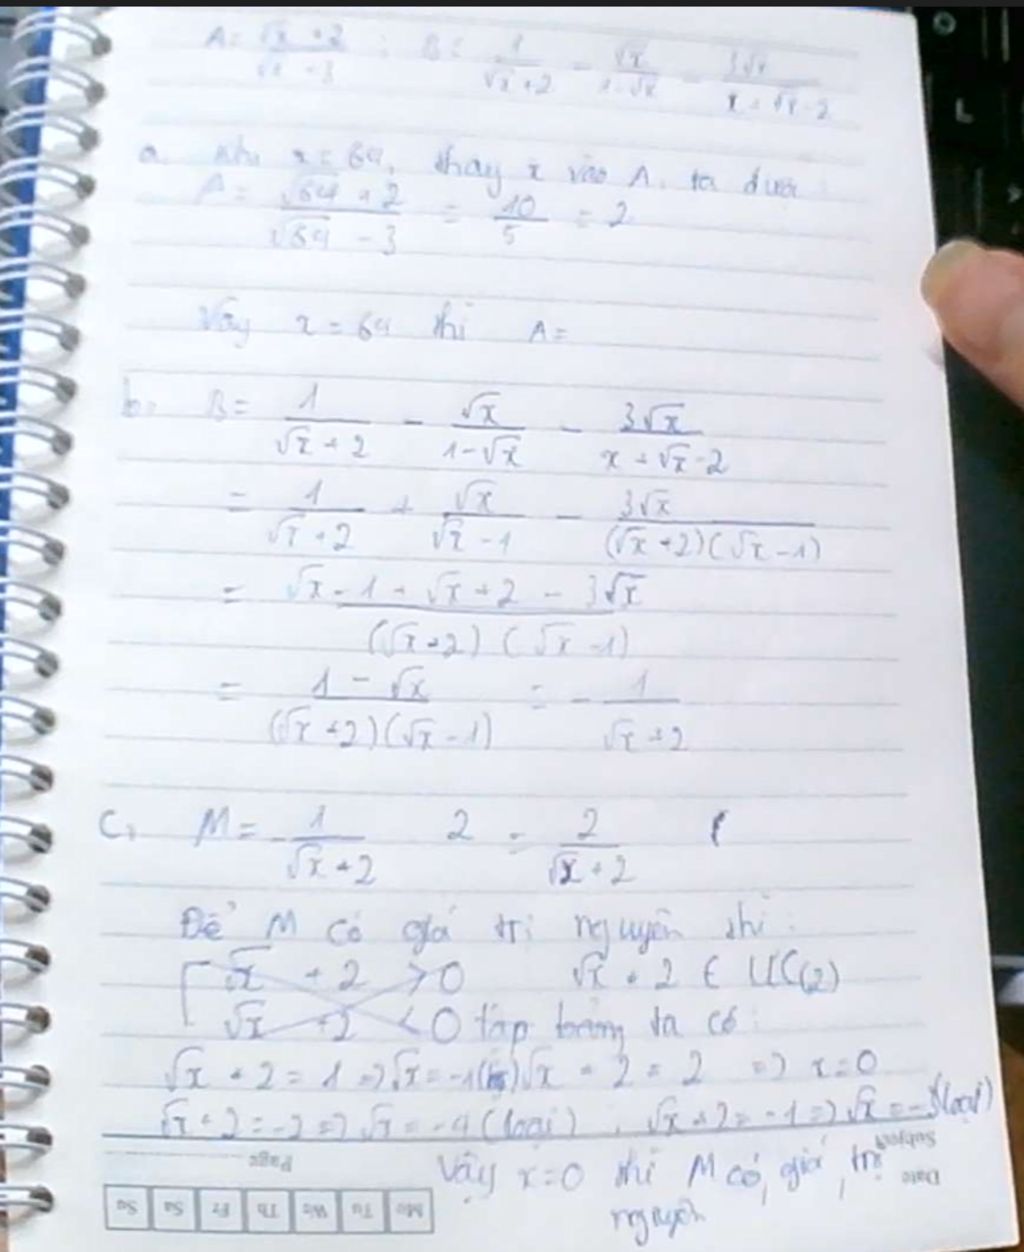 A = √x + 2 / √x - 3 ; B = 1 / √x + 2 - √x / 1 - √x - 3√x / x + √x - 2
a. Khi x = 64, thay x vào A, ta được
A = √64 + 2 / √64 - 3 = 10 / 5 = 2
Vậy x = 64 thì A =
b. B = 1 / √x + 2 - √x / 1 - √x - 3√x / x + √x - 2
= 1 / √x + 2 + √x / √x - 1 - 3√x / (√x + 2)(√x - 1)
= √x - 1 + √x + 2 - 3√x / (√x + 2)(√x - 1)
= 1 - √x / (√x + 2)(√x - 1) = - 1 / √x + 2
C, M = - 1 / √x + 2 2 = 2 / √x + 2
Để M có giá trị nguyên thì:
√x + 2 > 0 √x + 2 ∈ ƯC(2)
√x + 2 < 0 lập bảng ta có:
√x + 2 = 1 => √x = -1 √x + 2 = 2 => x = 0
√x + 2 = -2 => √x = -4 (loại), √x + 2 = -1 => √x = -3 (loại)
Vậy x = 0 thì M có giá trị
nguyên
Subject
Date
Page
Mo Tu We Th Fr Sa Su